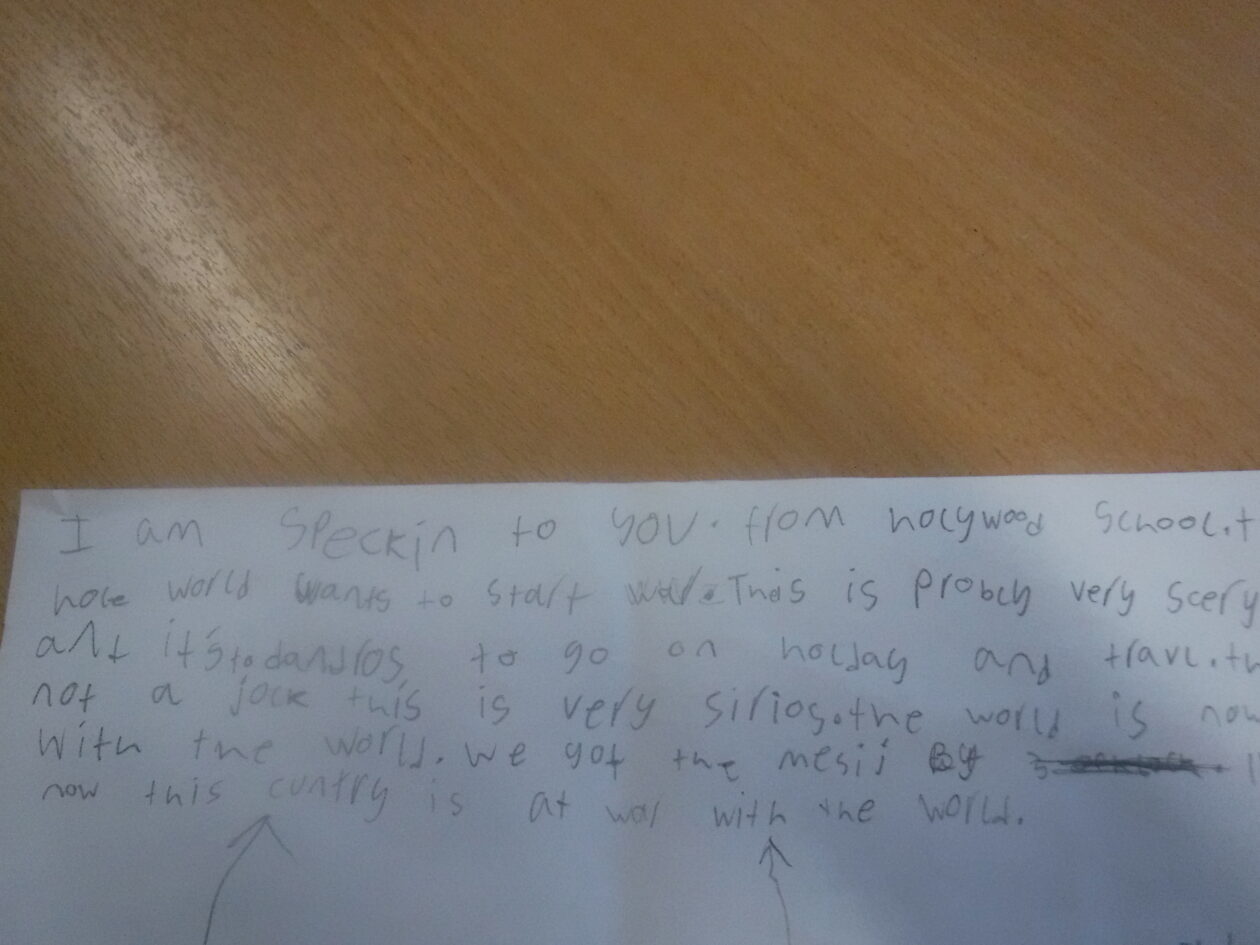 I am Speckin to you. from holywood School.t
hole world wants to start war. This is probly very scery
ant it's to dandros to go on holday and travl.th
not a jock this is very sirios.the world is now
with the world. we got the mesij By
now this cuntry is at war with the world.